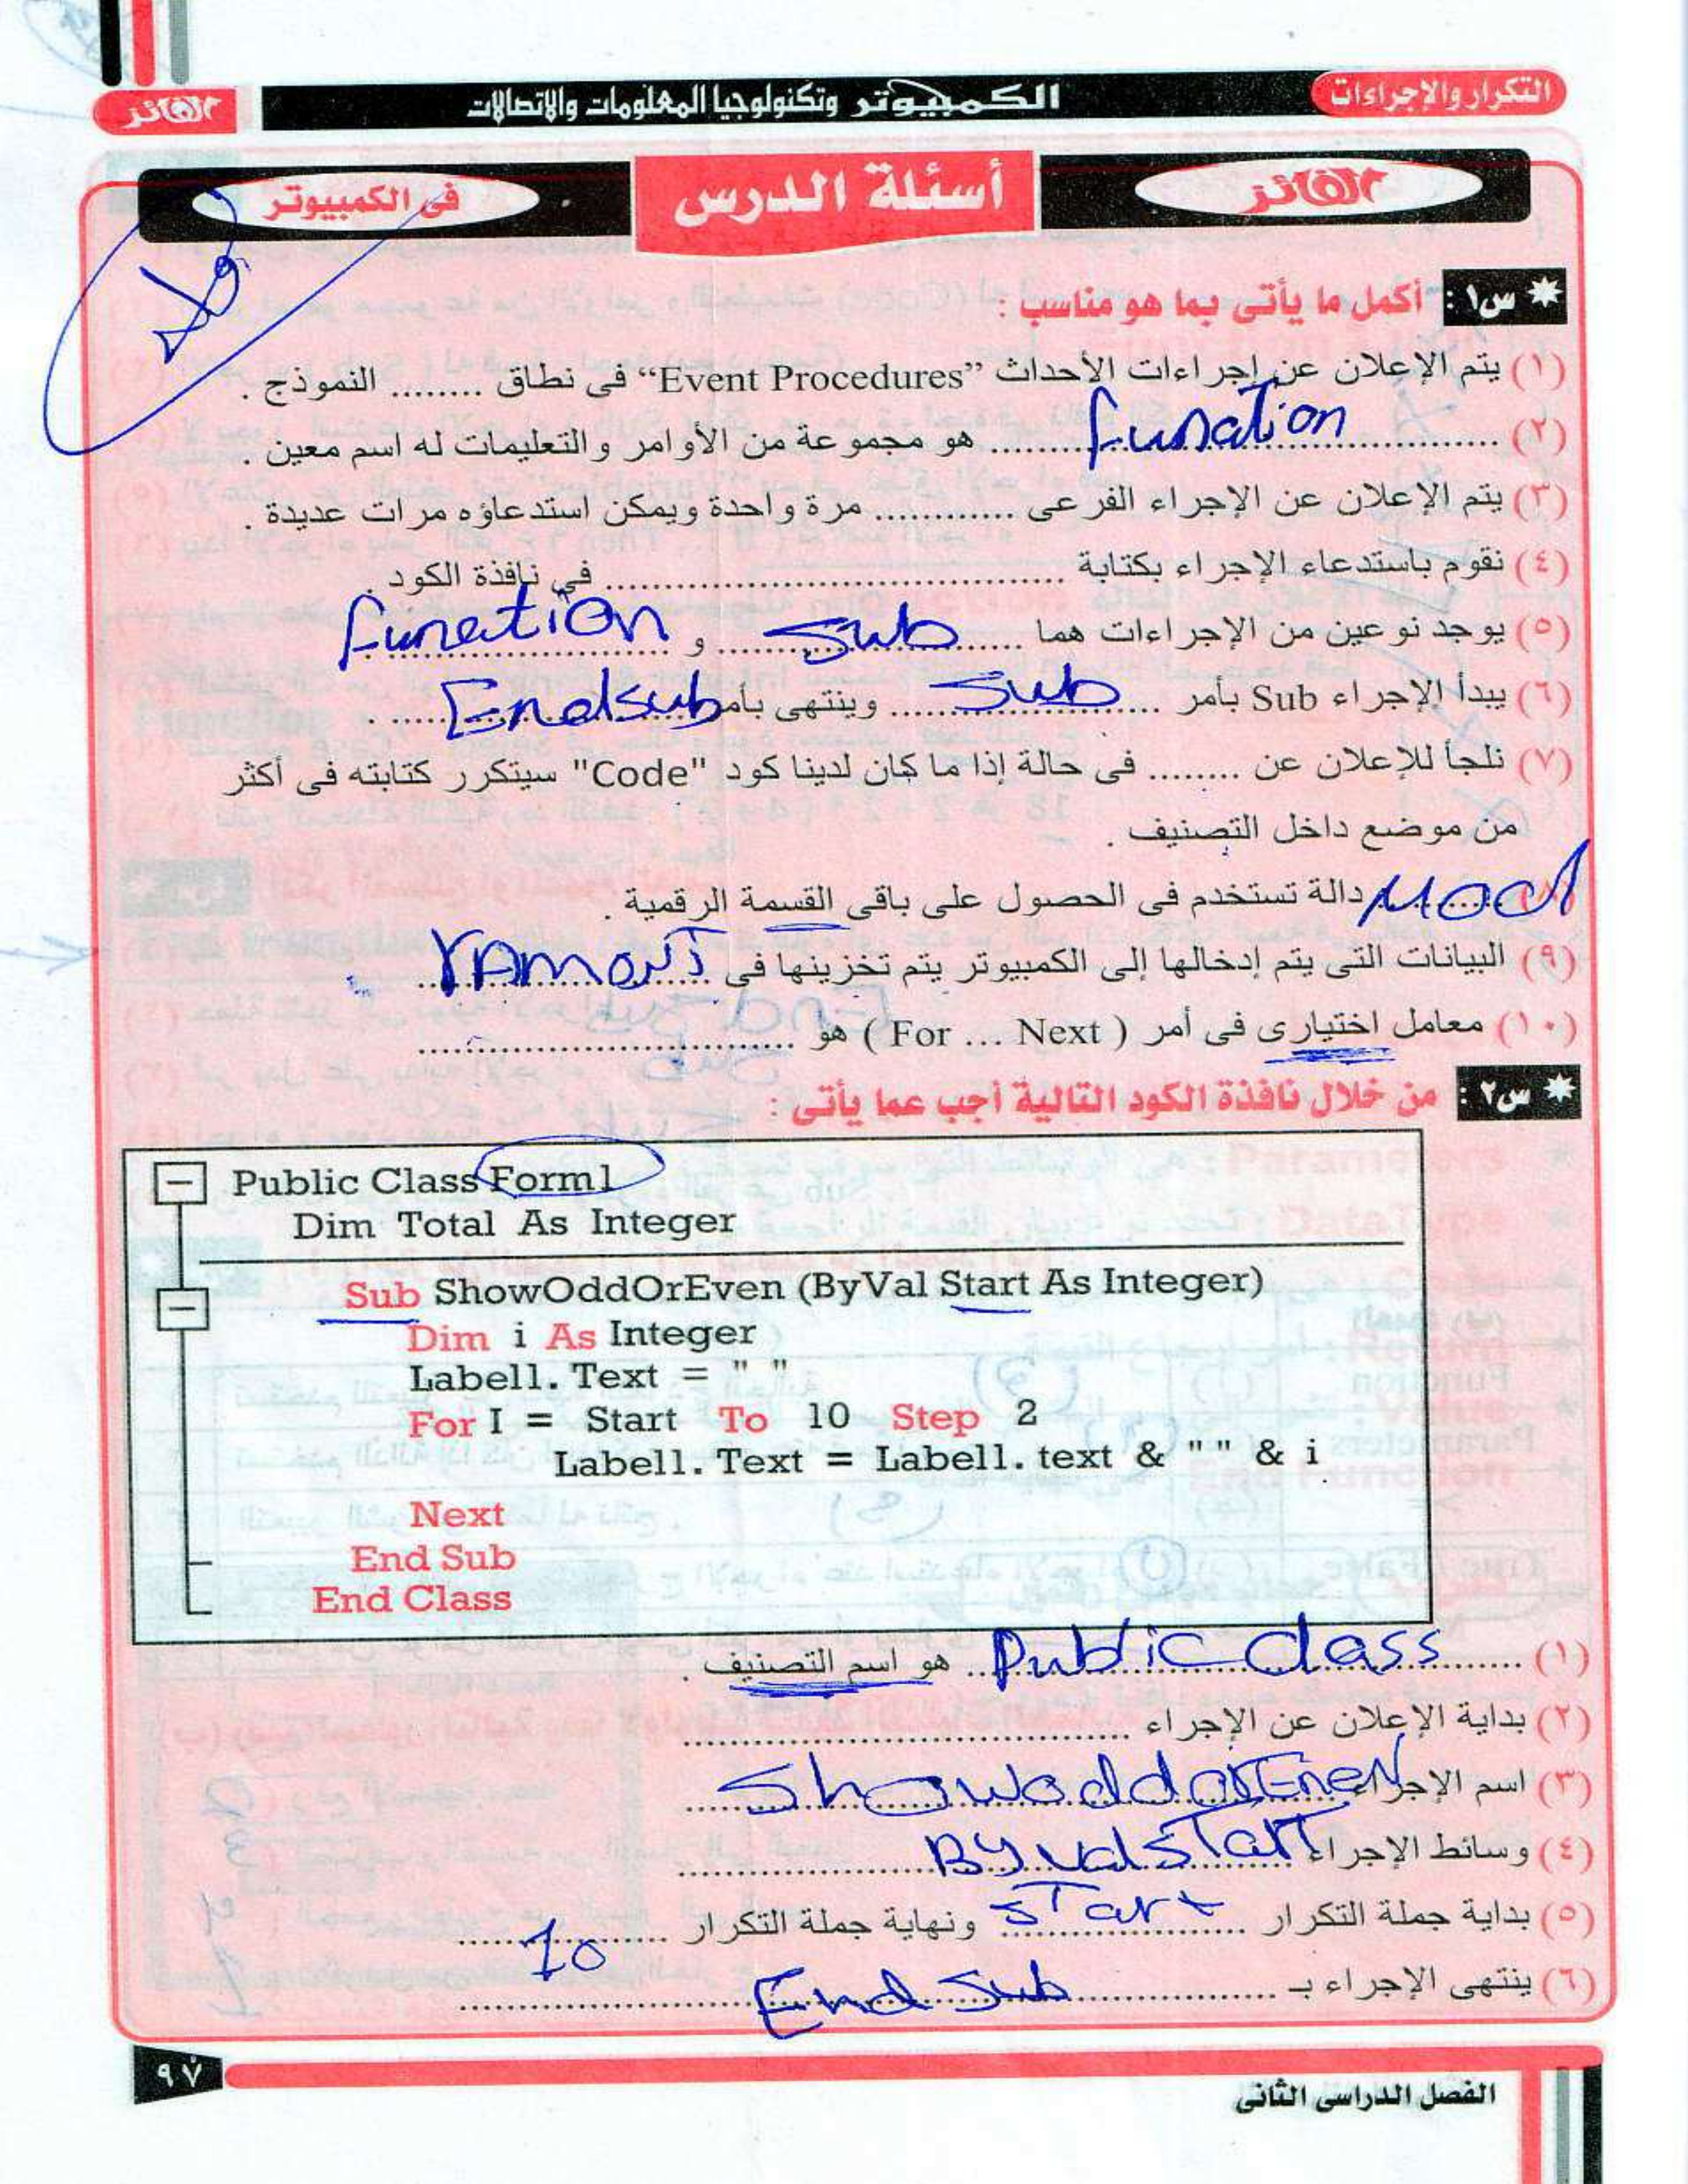 التكرار والإجراءات
الكمبيوتر وتكنولوجيا المعلومات والاتصالات
الفائز
الفائز
أسئلة الدرس
فى الكمبيوتر
* س١ : أكمل ما يأتى بما هو مناسب :
(١) يتم الإعلان عن إجراءات الأحداث "Event Procedures" فى نطاق ........ النموذج .
(٢) ........ function ........ هو مجموعة من الأوامر والتعليمات له اسم معين .
(٣) يتم الإعلان عن الإجراء الفرعى ............ مرة واحدة ويمكن استدعاؤه مرات عديدة .
(٤) نقوم باستدعاء الإجراء بكتابة ........................ فى نافذة الكود .
(٥) يوجد نوعين من الإجراءات هما ...... Sub ...... و ...... function ......
(٦) يبدأ الإجراء Sub بأمر ...... Sub ...... وينتهى بأمر ...... End sub ...... .
(٧) نلجأ للإعلان عن ........ فى حالة إذا ما كان لدينا كود "Code" سيتكرر كتابته فى أكثر
من موضع داخل التصنيف .
(٨) Mod دالة تستخدم فى الحصول على باقى القسمة الرقمية .
(٩) البيانات التى يتم إدخالها إلى الكمبيوتر يتم تخزينها فى ........................
(١٠) معامل اختيارى فى أمر ( For ... Next ) هو ........................
* س٢ : من خلال نافذة الكود التالية أجب عما يأتى :
Public Class Form1
Dim Total As Integer
Sub ShowOddOrEven (ByVal Start As Integer)
Dim i As Integer
Labell. Text = " "
For I = Start To 10 Step 2
Labell. Text = Labell. text & " " & i
Next
End Sub
End Class
(١) ...... Public class ...... هو اسم التصنيف .
(٢) بداية الإعلان عن الإجراء ........................
(٣) اسم الإجراء ...... ShowoddorEven ......
(٤) وسائط الإجراء ...... By val Start ......
(٥) بداية جملة التكرار ...... Start ...... ونهاية جملة التكرار ...... 10 ......
(٦) ينتهى الإجراء بـ ...... End Sub ......
٩٧
الفصل الدراسى الثانى